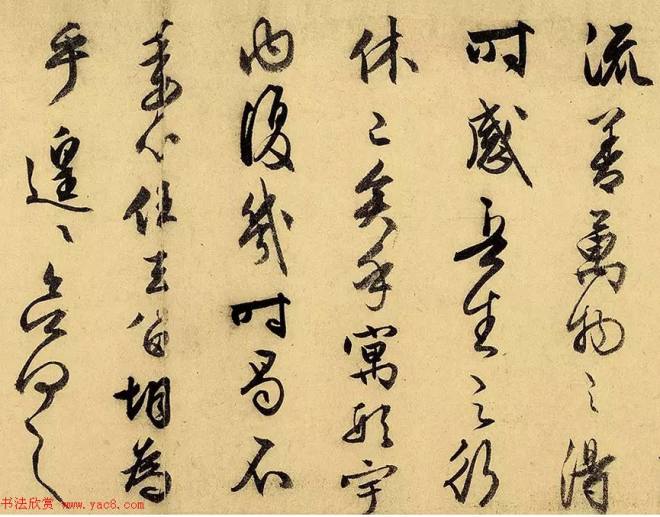 流善萬物之得
時感吾生之行
休已矣乎寓形宇
內復幾時曷不
委心任去留胡為
乎遑々欲何之
书法欣赏 www.yac8.com